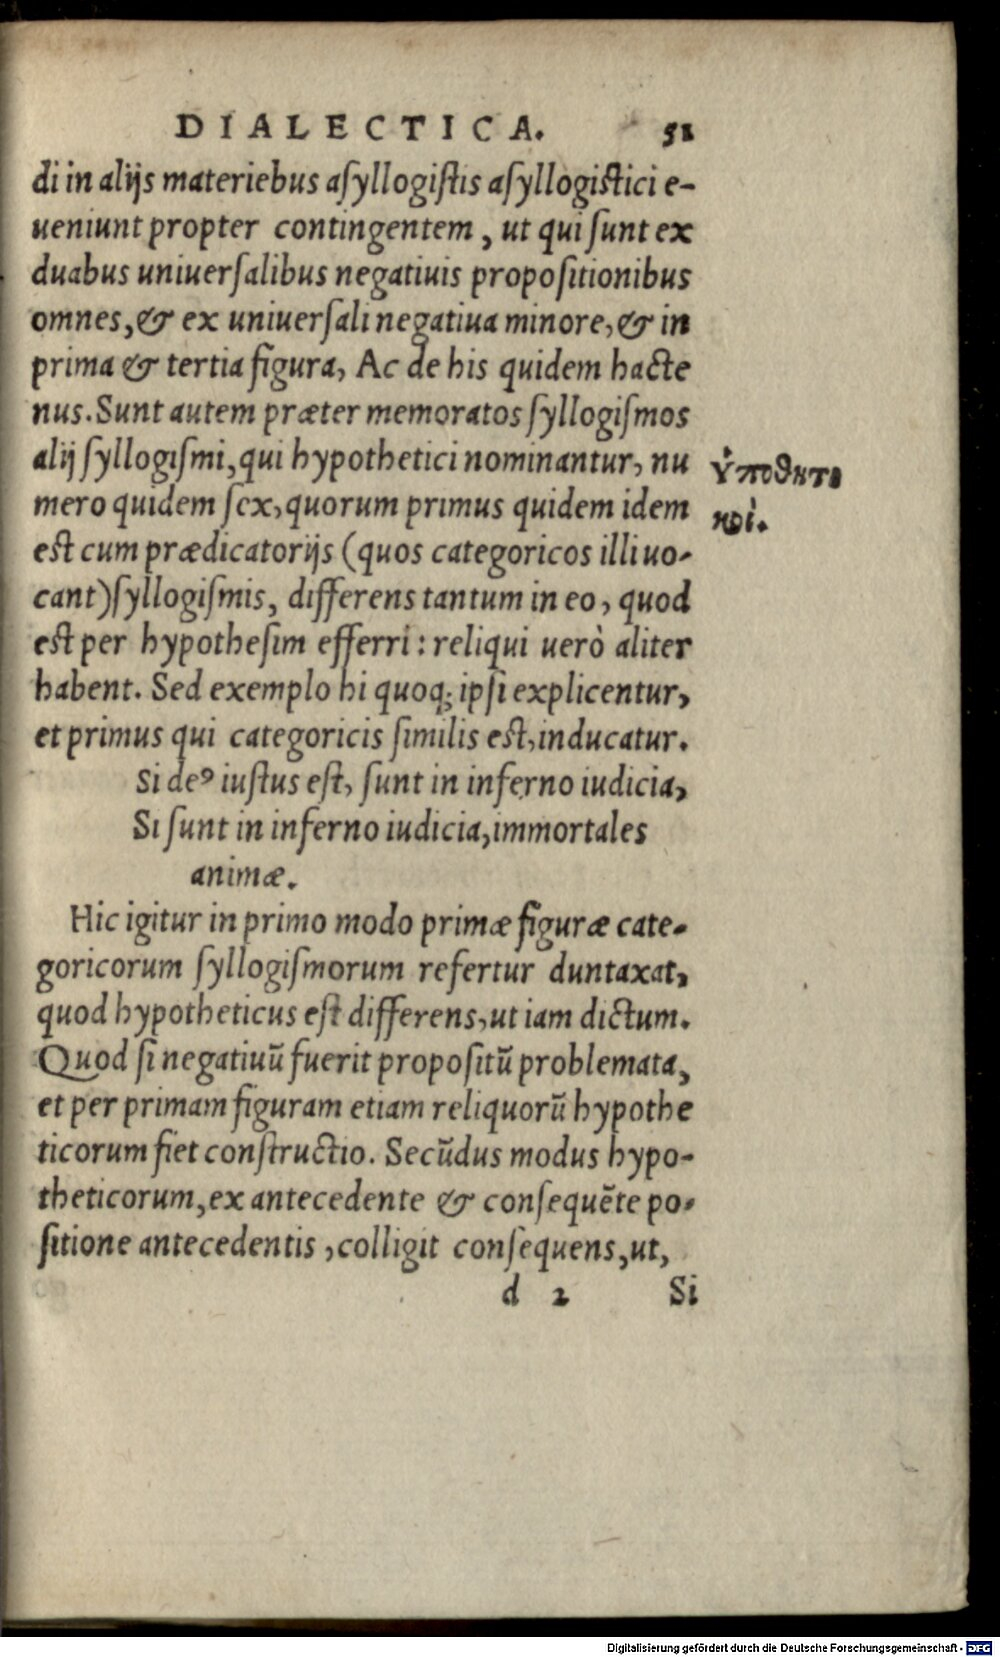 DIALECTICA. 51
di in alijs materiebus aſyllogiſtis aſyllogiſtici e-
ueniunt propter contingentem, ut qui ſunt ex
duabus uniuerſalibus negatiuis propoſitionibus
omnes, & ex uniuerſali negatiua minore, & in
prima & tertia figura, Ac de his quidem hacte
nus. Sunt autem præter memoratos ſyllogiſmos
alij ſyllogiſmi, qui hypothetici nominantur, nu
mero quidem ſex, quorum primus quidem idem
eſt cum prædicatorijs (quos categoricos illi uo-
cant) ſyllogiſmis, differens tantum in eo, quod
eſt per hypotheſim efferri: reliqui uerò aliter
habent. Sed exemplo hi quoq; ipſi explicentur,
et primus qui categoricis ſimilis eſt, inducatur.
ὑποθητι
κοὶ.
Si deꝰ iuſtus eſt, ſunt in inferno iudicia,
Si ſunt in inferno iudicia, immortales
animæ.
Hic igitur in primo modo primæ figuræ cate-
goricorum ſyllogiſmorum refertur duntaxat,
quod hypotheticus eſt differens, ut iam dictum.
Quod ſi negatiuū fuerit propoſitū problemata,
et per primam figuram etiam reliquorū hypothe
ticorum fiet conſtructio. Secūdus modus hypo-
theticorum, ex antecedente & conſequēte po-
ſitione antecedentis, colligit conſequens, ut,
d 2 Si
Digitalisierung gefördert durch die Deutsche Forschungsgemeinschaft - DFG